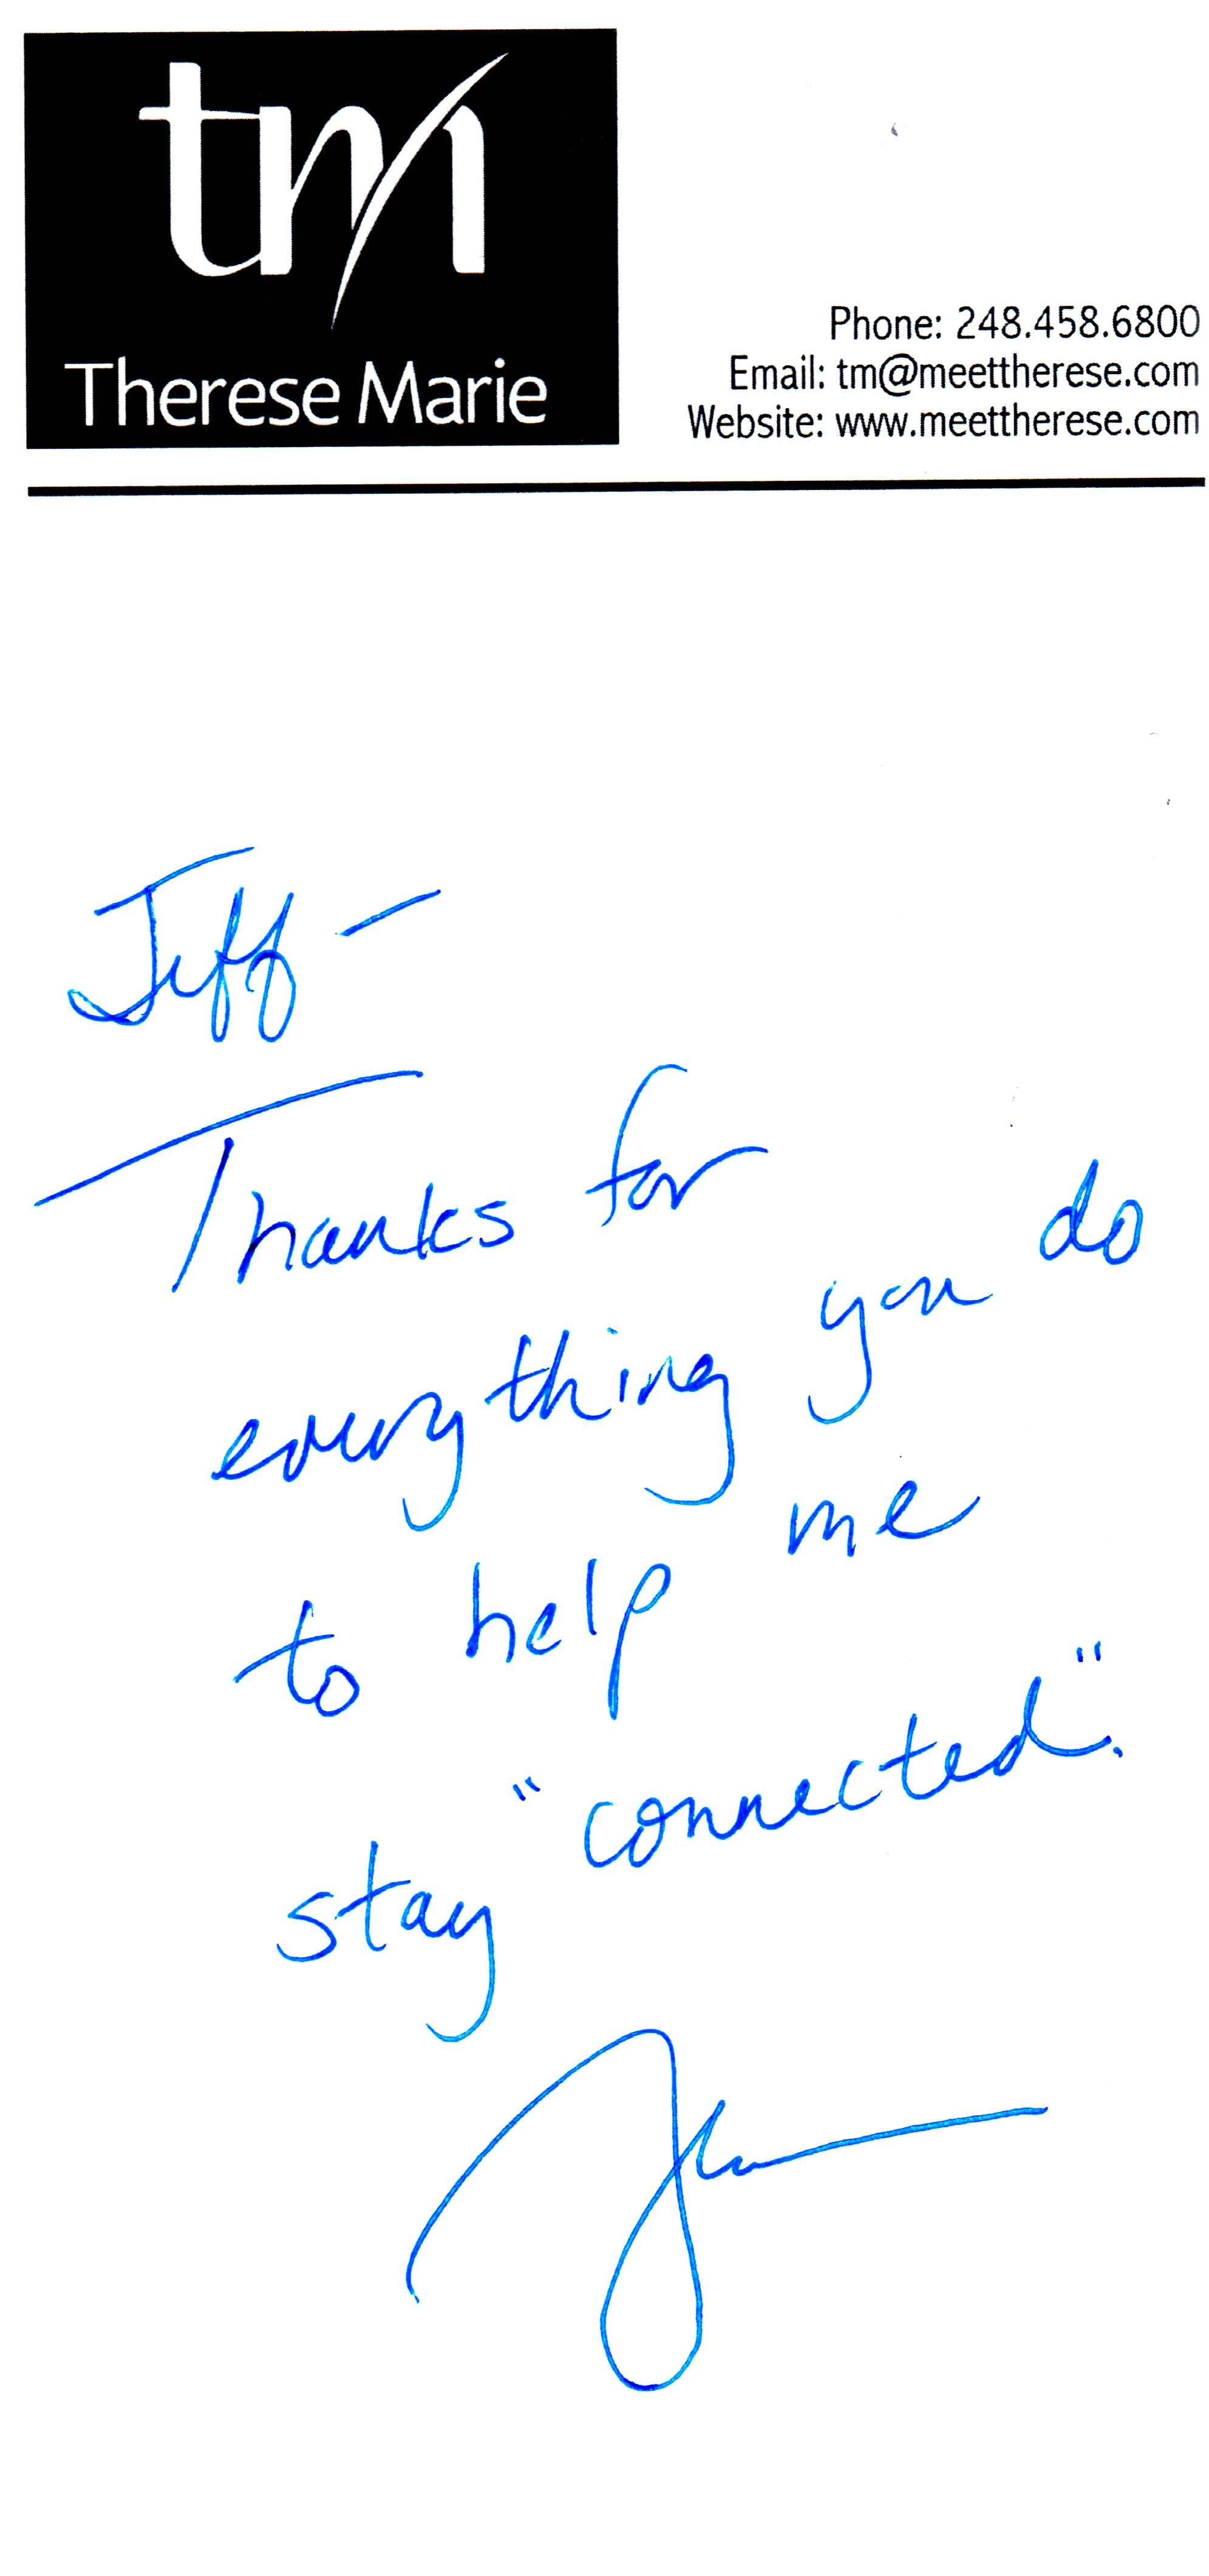 tm
Therese Marie
Phone: 248.458.6800
Email: tm@meettherese.com
Website: www.meettherese.com
Jeff -
Thanks for
everything you do
to help me
stay "connected."